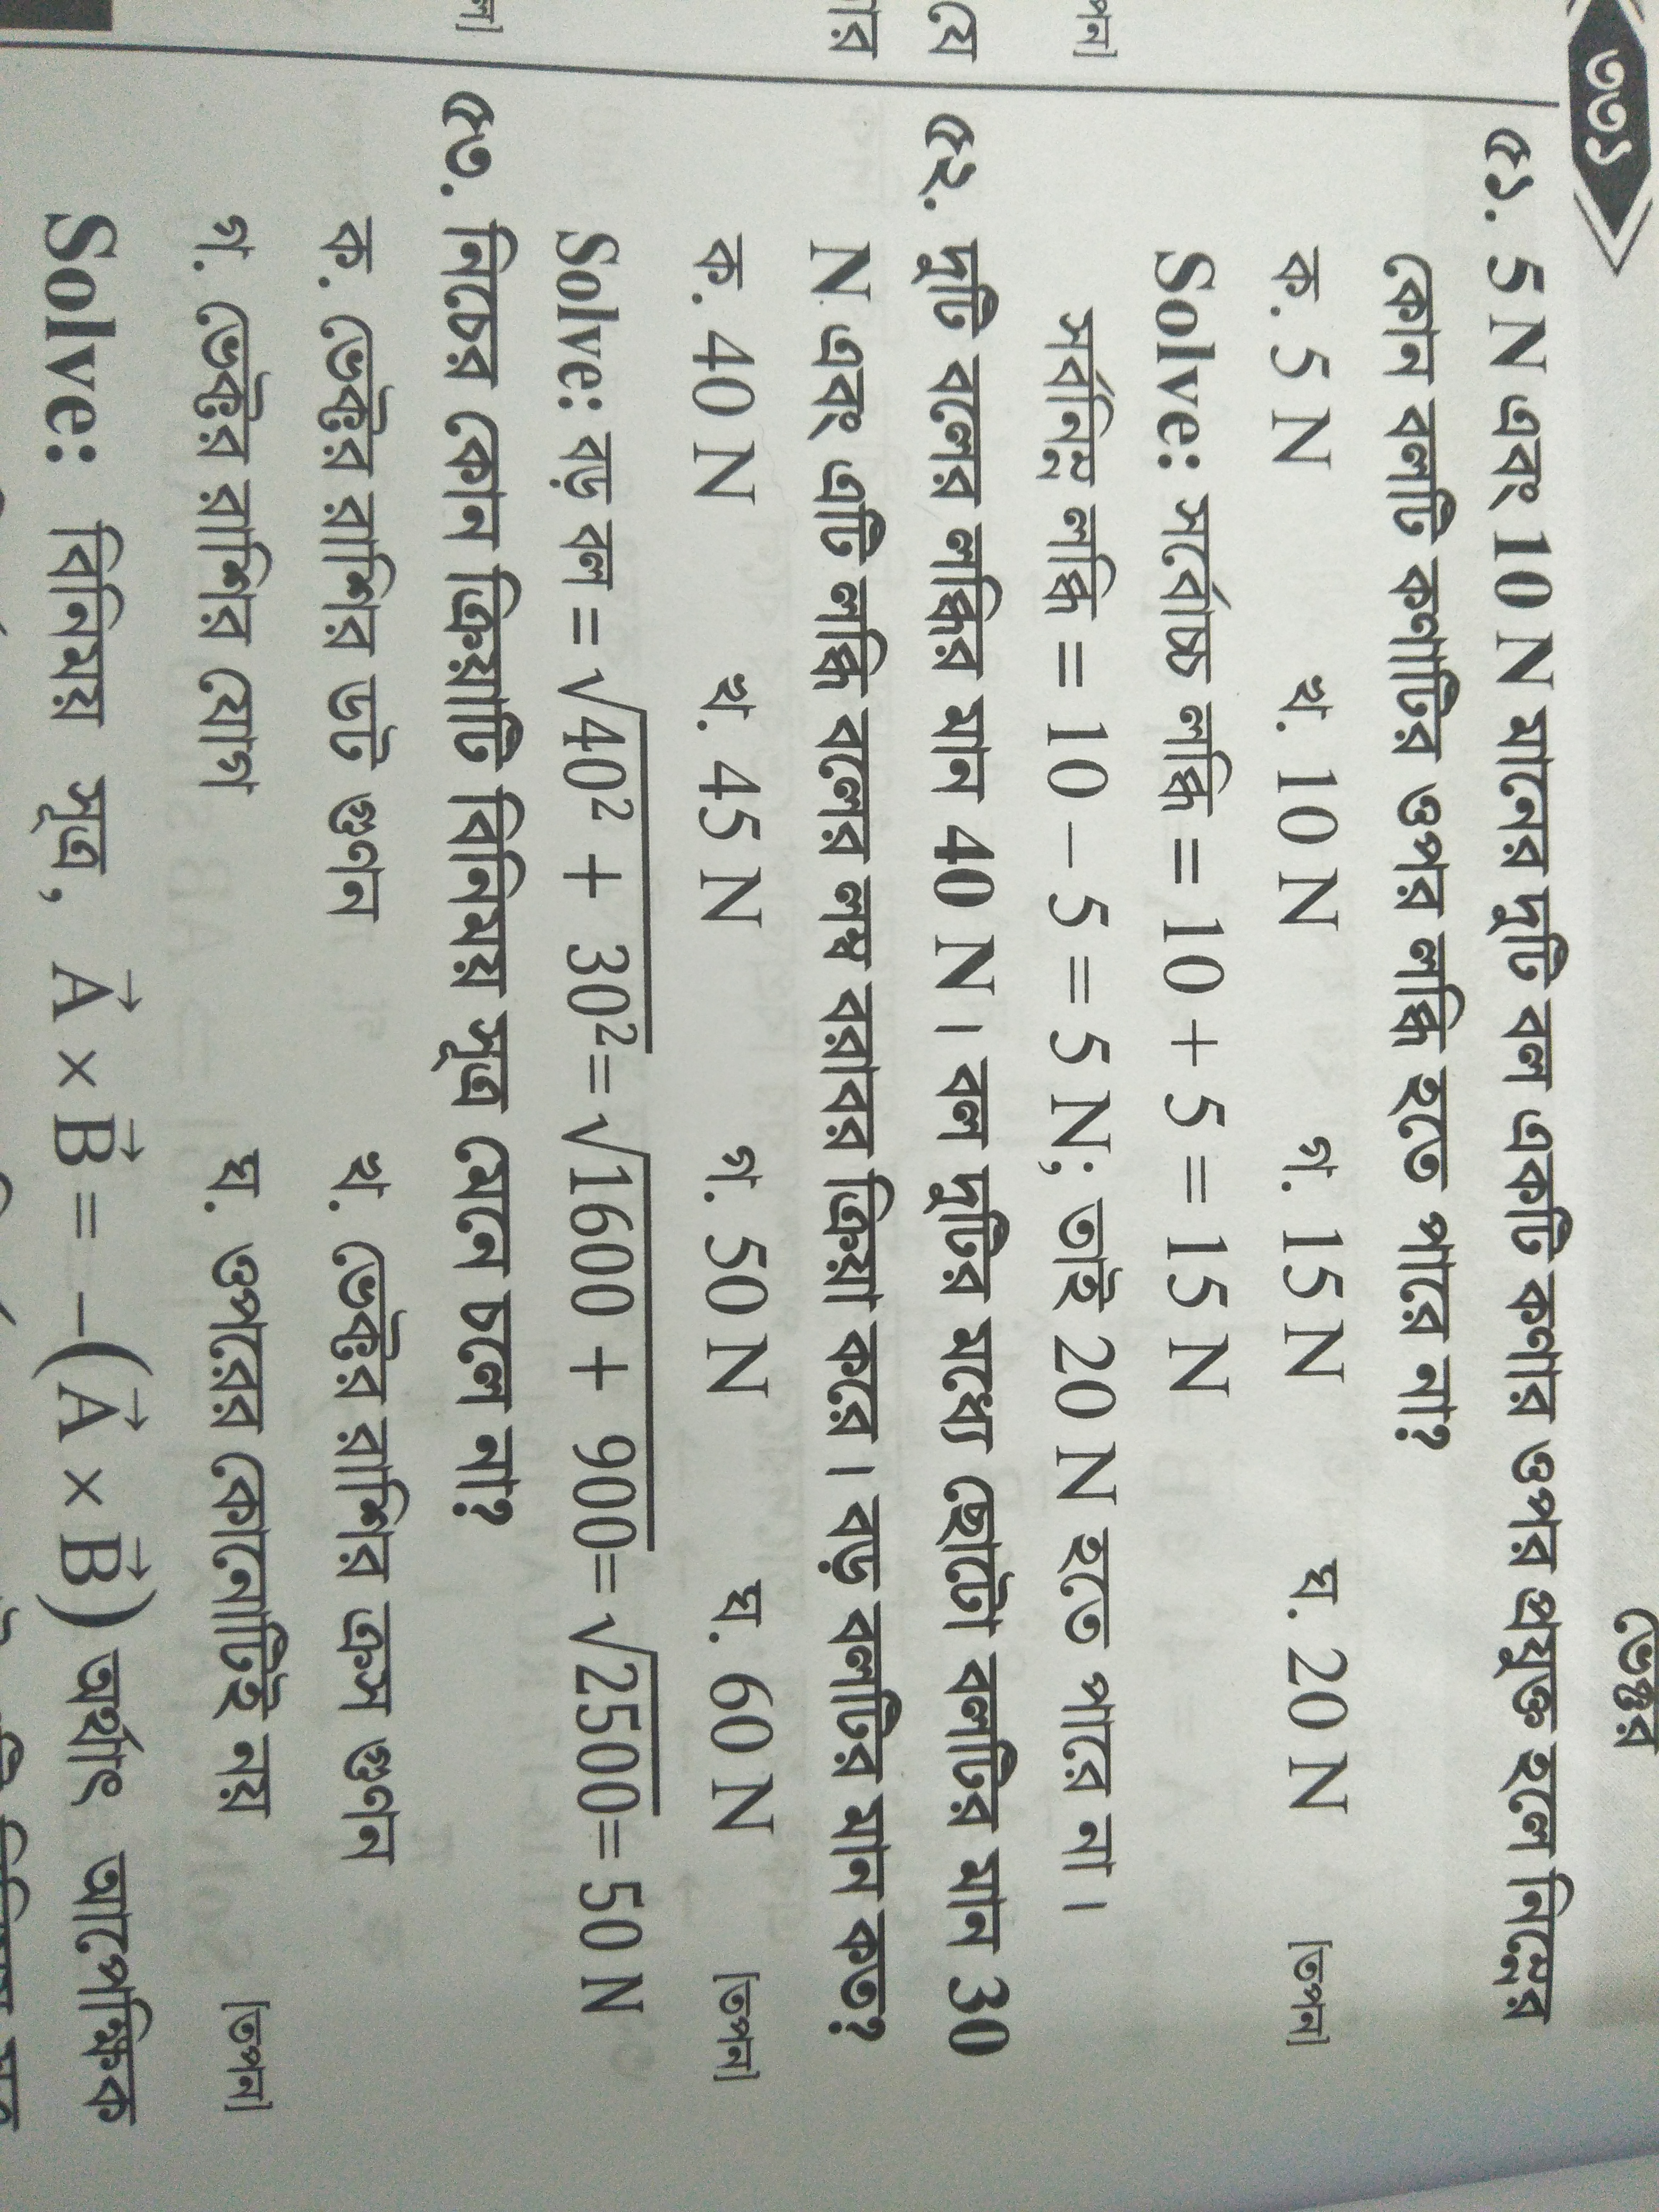 ৩৩১
ভেক্টর
৫১. 5 N এবং 10 N মানের দুটি বল একটি কণার ওপর প্রযুক্ত হলে নিম্নের
কোন বলটি কণাটির ওপর লব্ধি হতে পারে না?
ক. 5 N খ. 10 N গ. 15 N ঘ. 20 N [তপন]
Solve: সর্বোচ্চ লব্ধি = 10 + 5 = 15 N
সর্বনিম্ন লব্ধি = 10 – 5 = 5 N; তাই 20 N হতে পারে না।
৫২. দুটি বলের লব্ধির মান 40 N। বল দুটির মধ্যে ছোটো বলটির মান 30
N এবং এটি লব্ধি বলের লম্ব বরাবর ক্রিয়া করে। বড় বলটির মান কত?
ক. 40 N খ. 45 N গ. 50 N ঘ. 60 N [তপন]
Solve: বড় বল = √40² + 30² = √1600 + 900 = √2500 = 50 N
৫৩. নিচের কোন ক্রিয়াটি বিনিময় সূত্র মেনে চলে না?
ক. ভেক্টর রাশির ডট গুণন খ. ভেক্টর রাশির ক্রস গুণন
গ. ভেক্টর রাশির যোগ ঘ. ওপরের কোনোটিই নয় [তপন]
Solve: বিনিময় সূত্র, A⃗ × B⃗ = –(A⃗ × B⃗) অর্থাৎ আপেক্ষিক